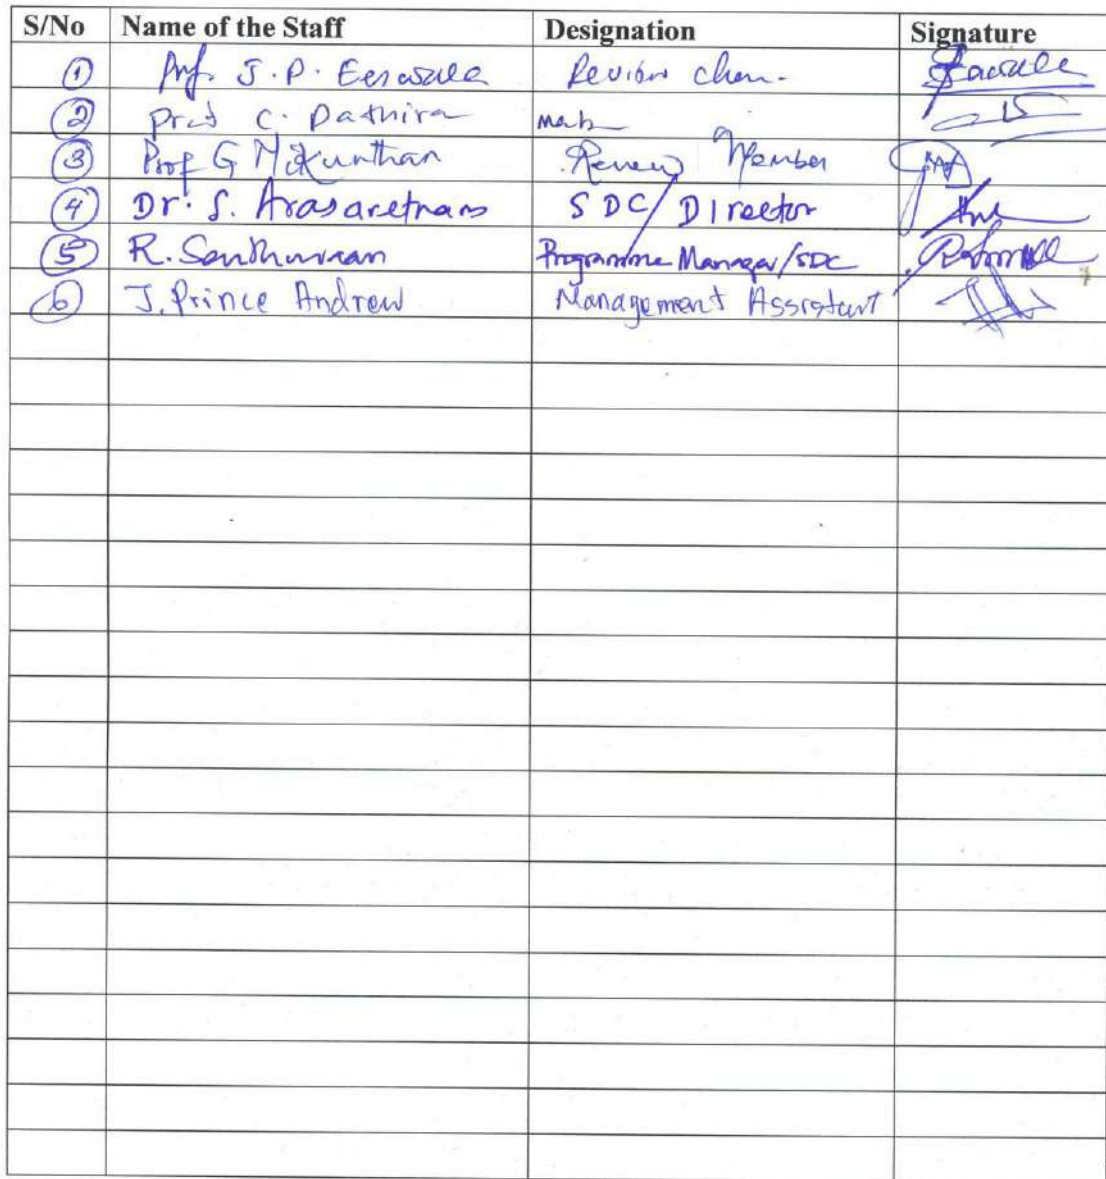 S/No Name of the Staff Designation Signature
1 Prof. J. P. Review
2 Prof C. Pathira
3 Prof G Mikunthan Review Member
4 Dr. S. Arasaretnam SDC/Director
5 R. Programme Manager/SDC
6 J. Prince Andrew Management Assistant